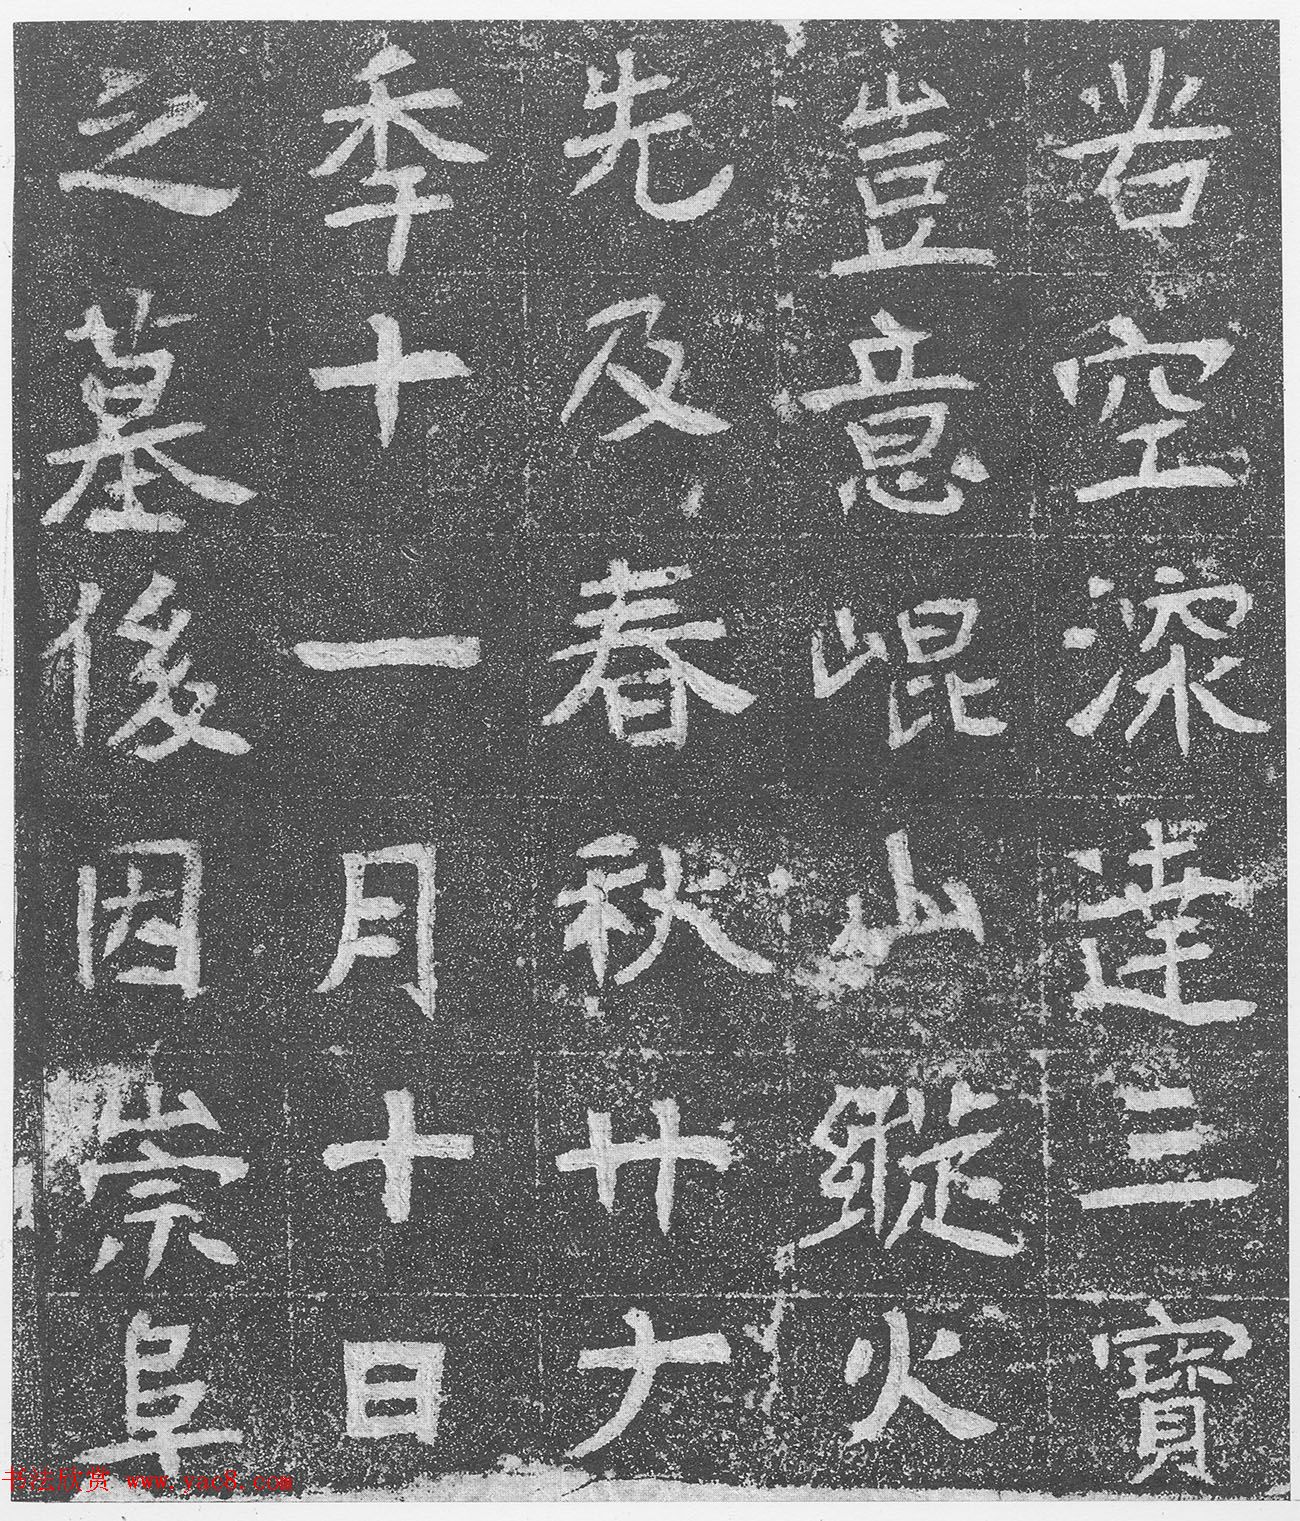 若空深達三寶
豈意崐山㩳火
先及春秋廿六
季十一月十日
之墓後因崇阜
书法欣赏 www.yac8.com